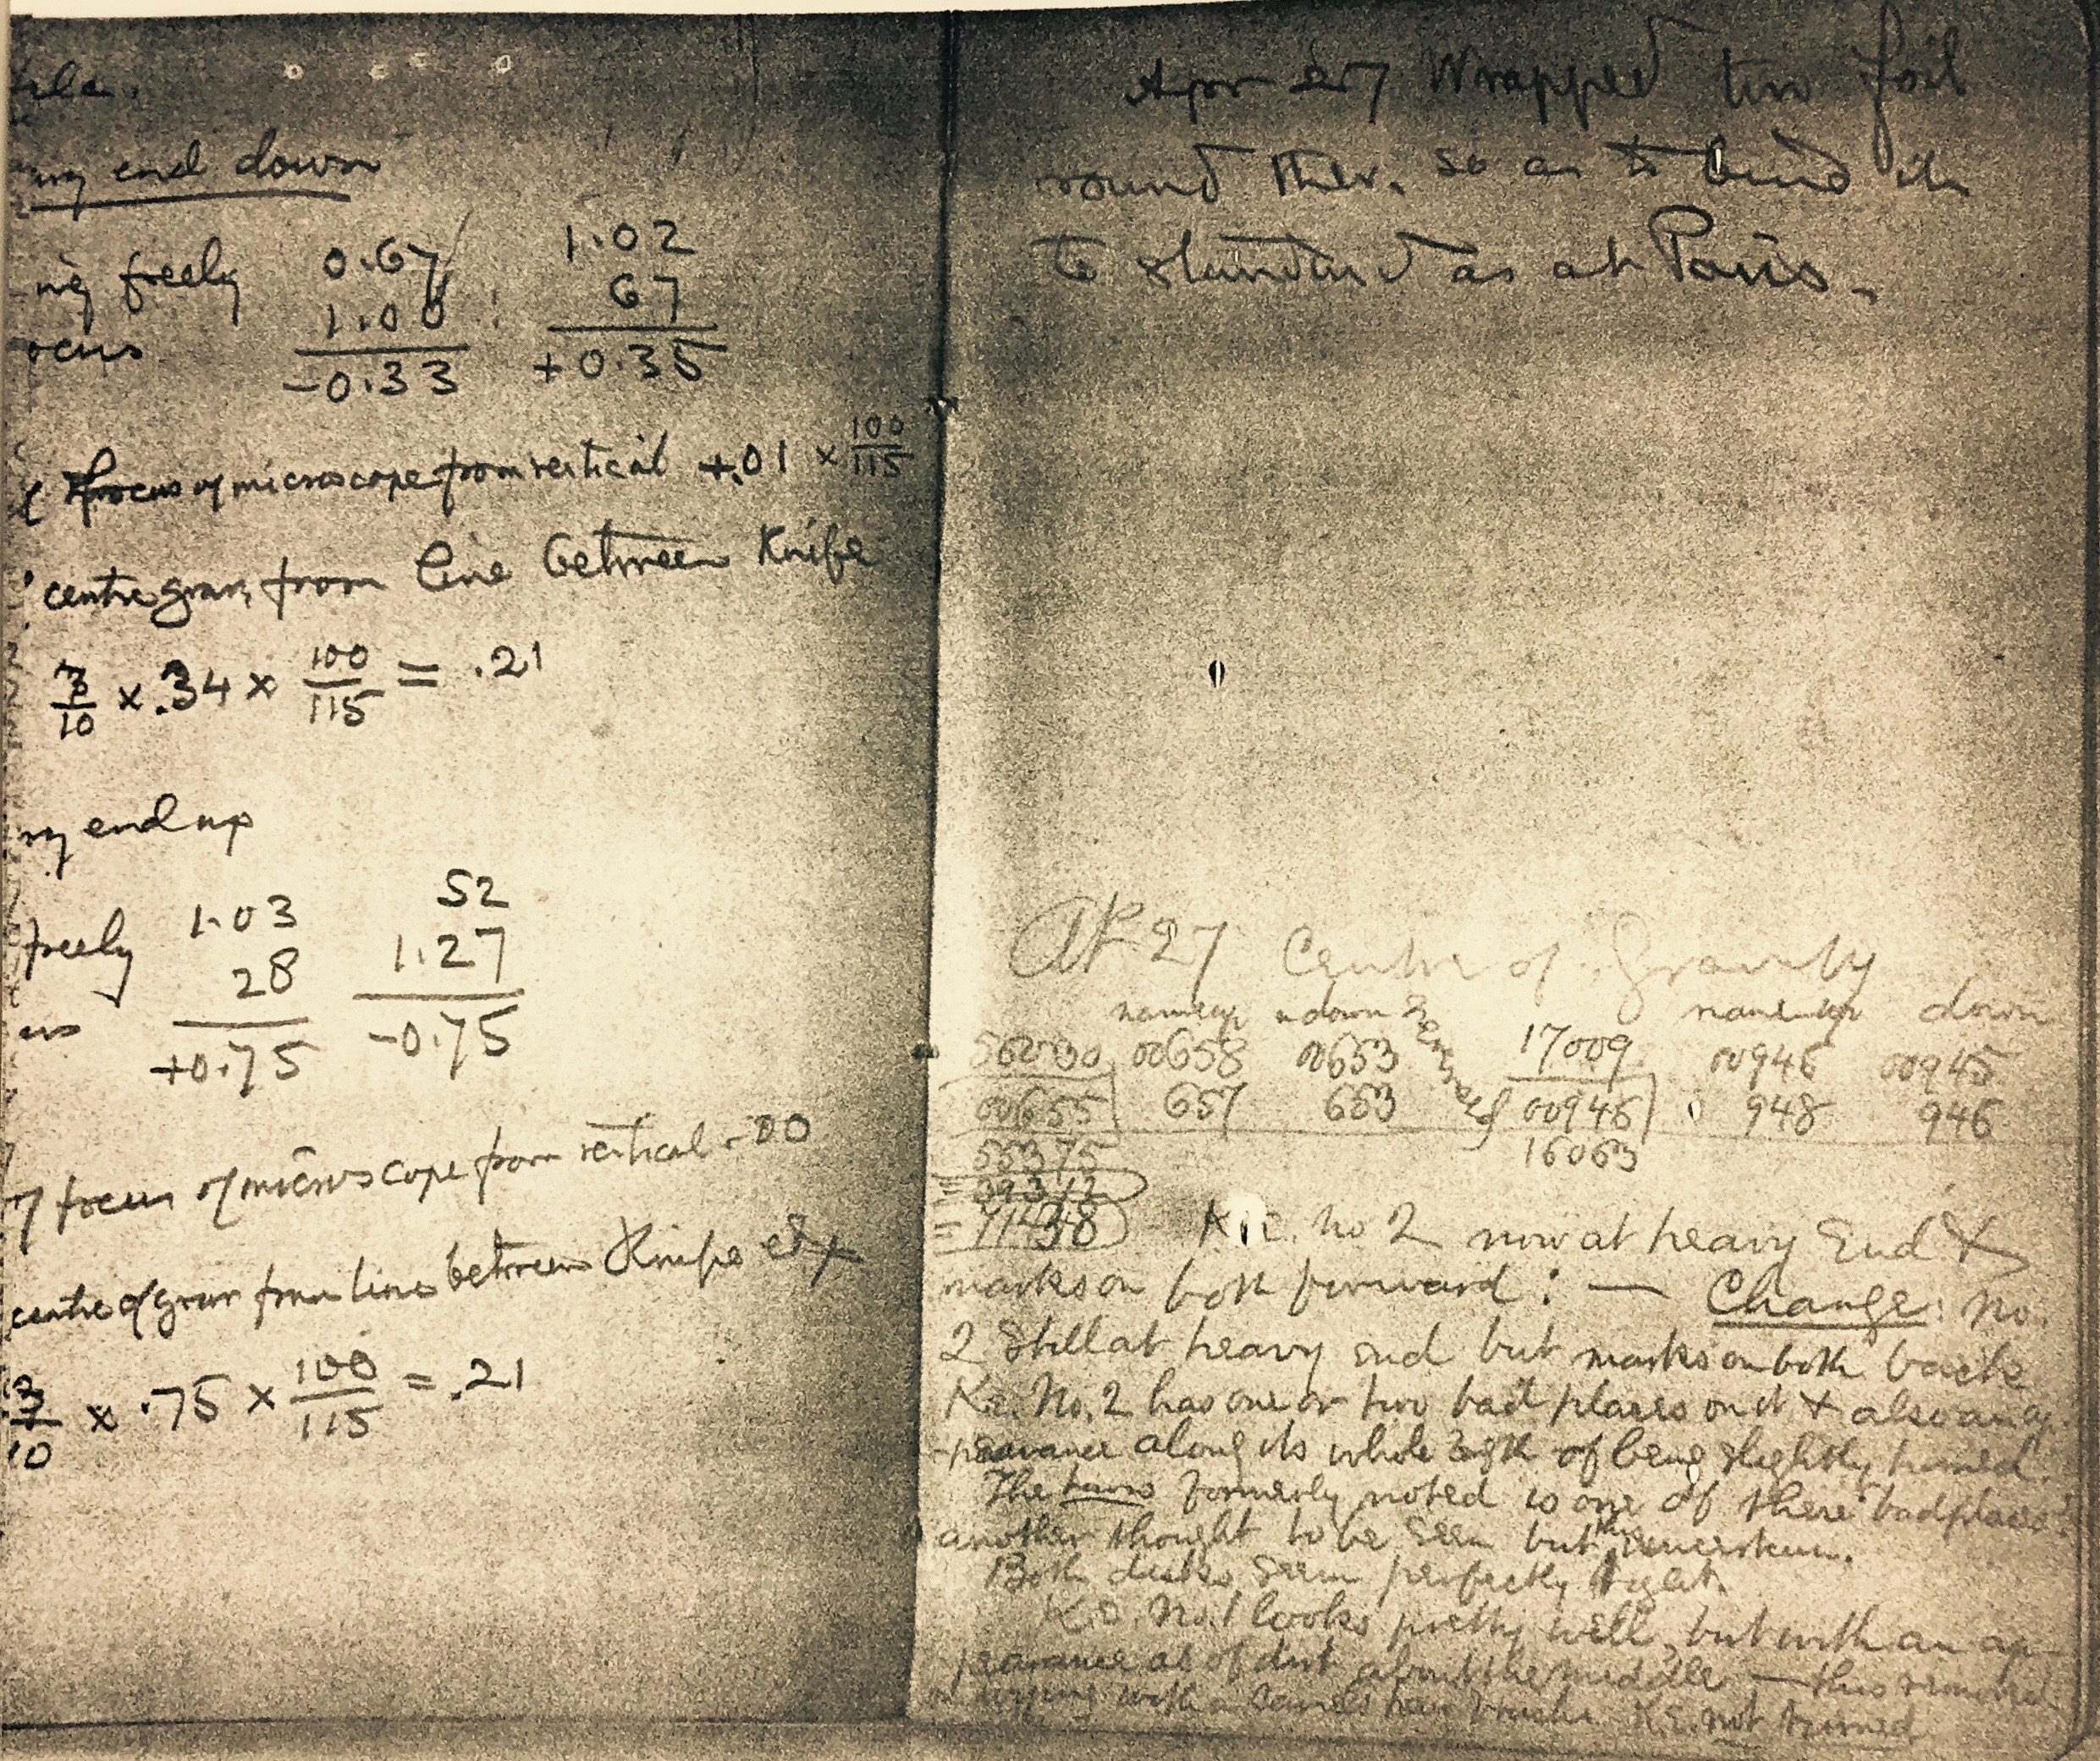 end down
freely 0.67 1.02
1.00 67
-0.33 +0.35
focus of microscope from vertical +.01 × 100/115
centre grav. from line between Knife
3/10 × .34 × 100/115 = .21
end up
freely 1.03 52
28 1.27
+0.75 -0.75
focus of microscope from vertical - 00
centre of grav from line between Knife edg
3/10 × .75 × 100/115 = .21
Apr 27 Wrapped tin foil
round ther. so as to bind it
to standard as at Paris.
Ap 27 Centre of Gravity
name up n down name up down
00658 00653 17009 00946 00945
00655 657 653 00946 948 946
55375 16063
=
= 71438 K.E. no 2 now at heavy End &
marks on both forward: — Change: No.
2 Still at heavy end but marks on both back
K.E. No. 2 has one or two bad places on it & also an ap
-pearance along its whole length of being slightly turned.
The formerly noted is one of there "bad places"
another thought to be seen but
Both seem perfectly tight.
K.E. No. 1 looks pretty well, but with an ap-
pearance as of dirt about the middle — this removed
with a camels hair K.E. not turned